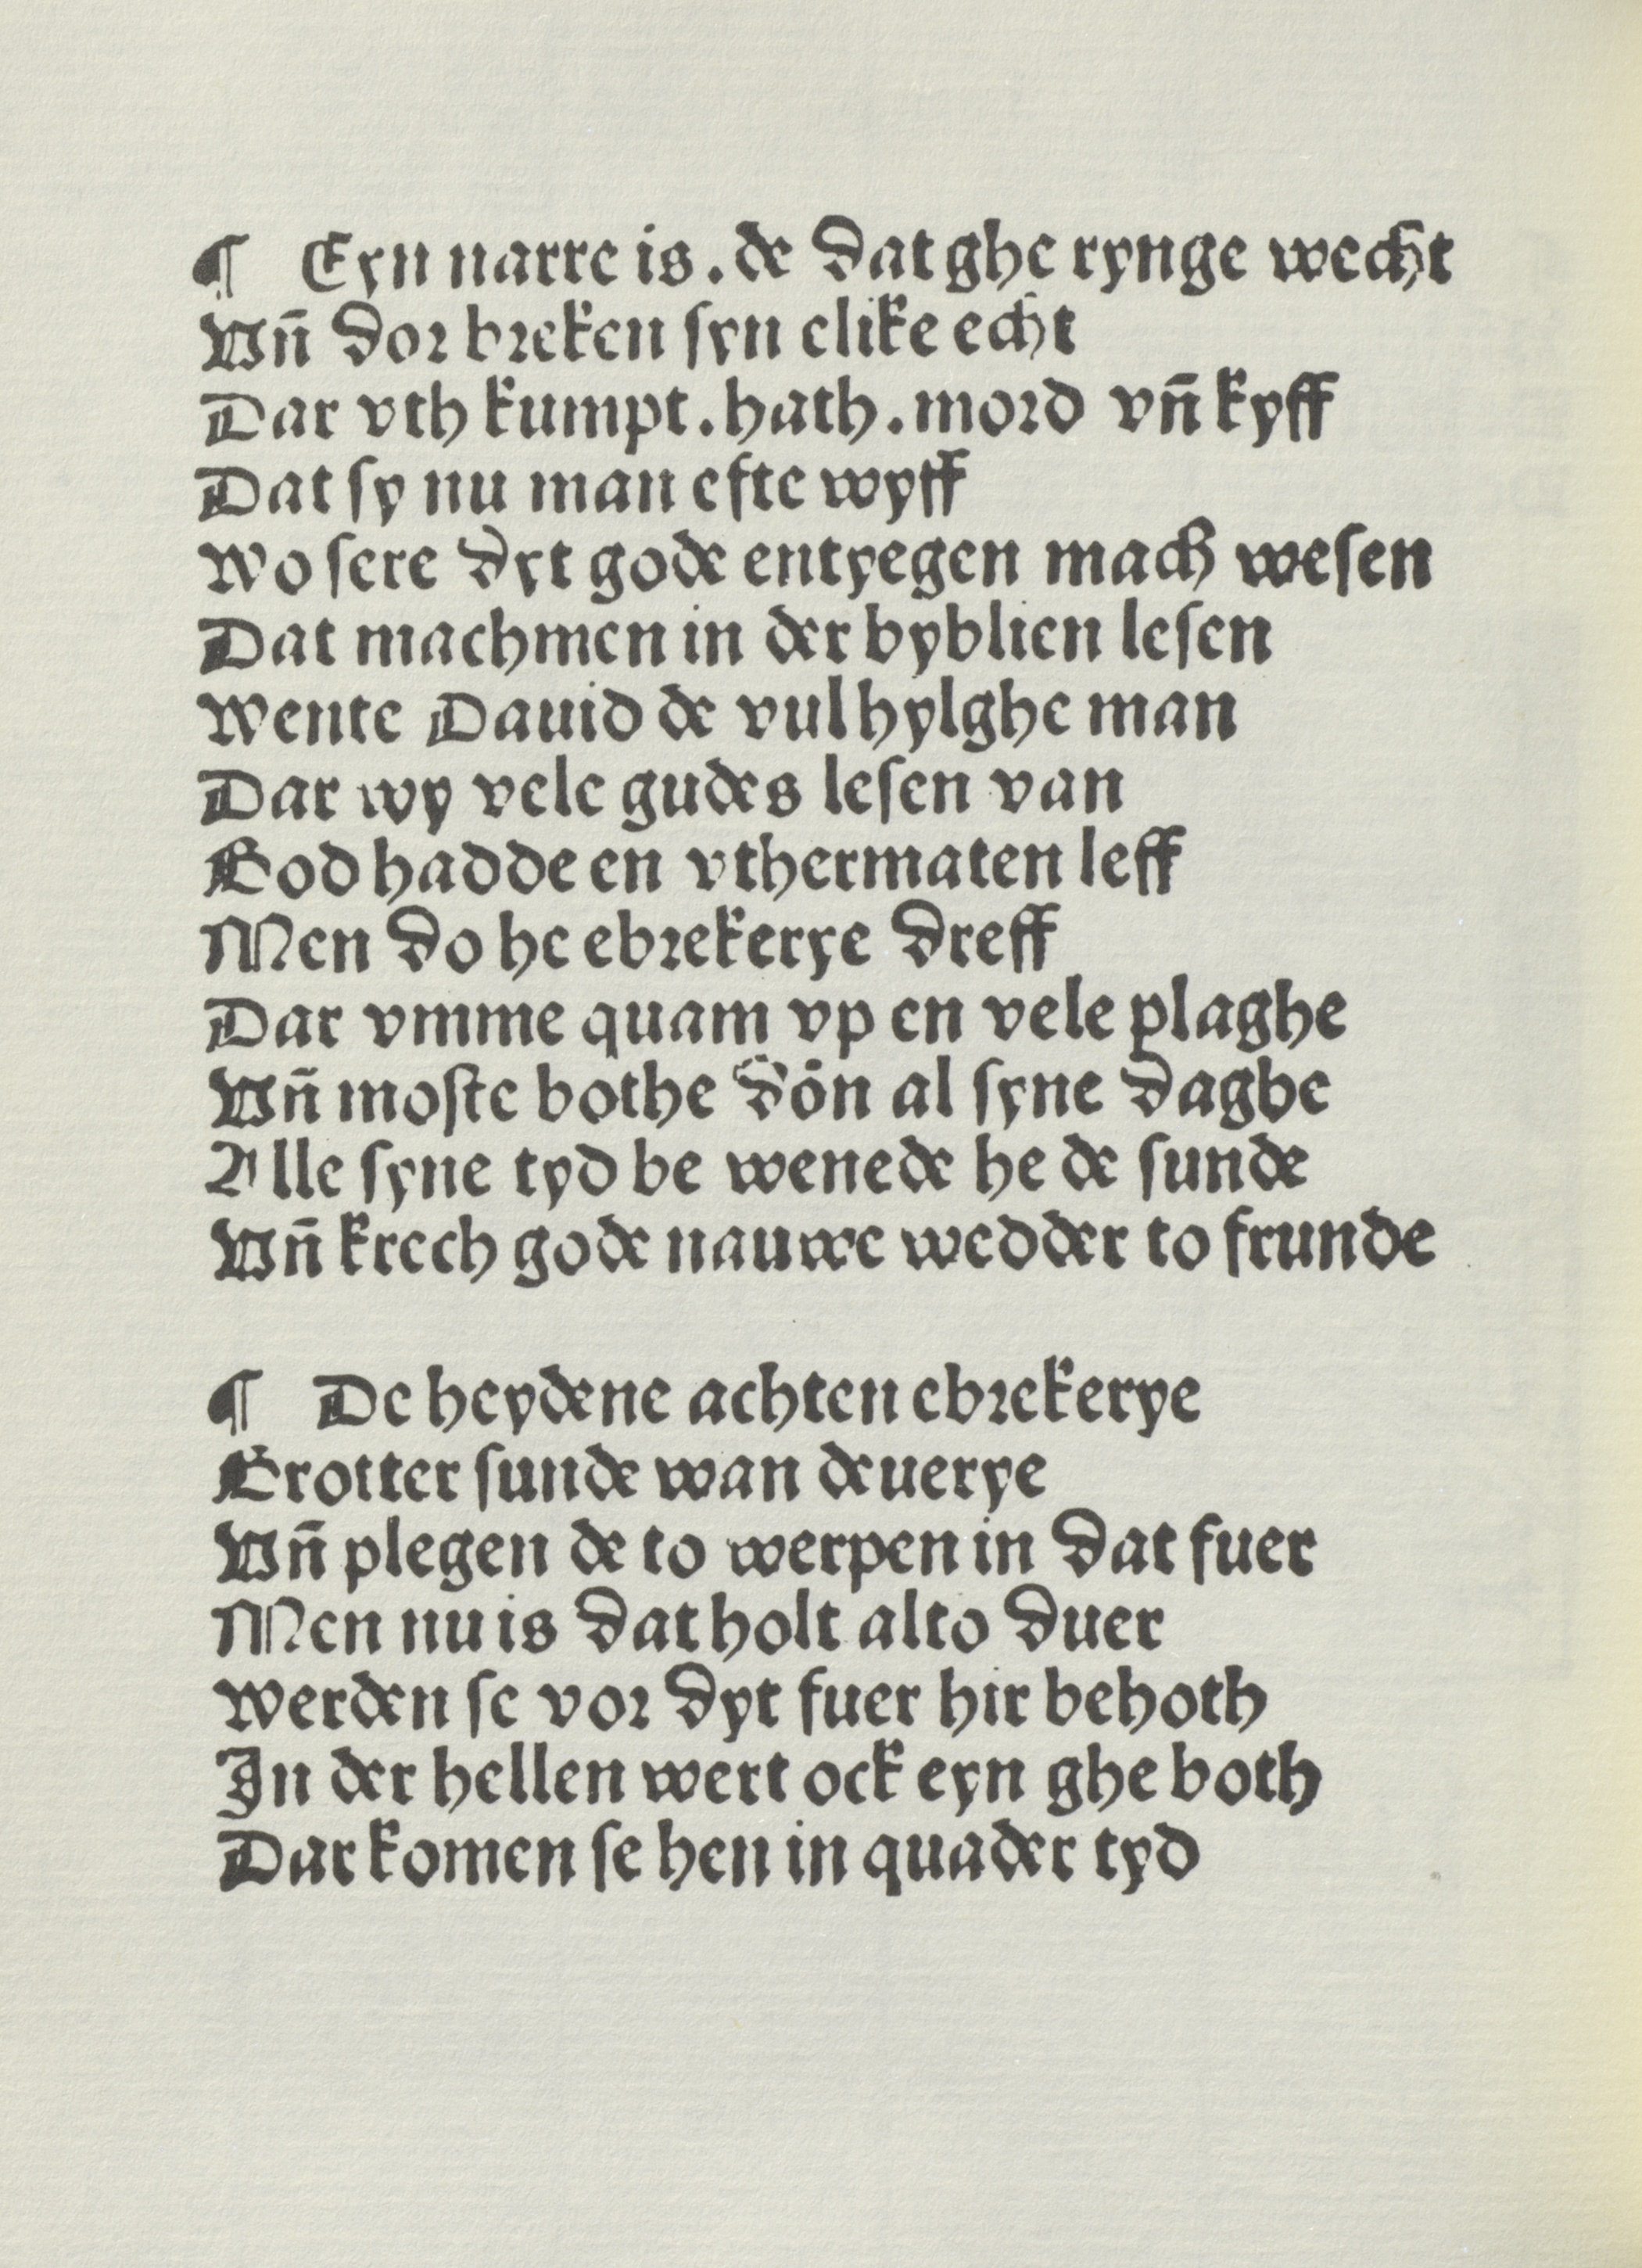 ¶ Eyn narre is. de dat ghe rynge wecht
Vn̄ dor breken ſyn elike echt
Dar vth kumpt. hath. mord vn̄ kyff
Dat ſy nu man efte wyff
Wo ſere dyt gode entyegen mach weſen
Dat machmen in der byblien leſen
Wente Dauid de vul hylghe man
Dar wy vele gudes leſen van
God hadde en vthermaten leff
Men do he ebrekerye dreff
Dar vmme quam vp en vele plaghe
Vn̄ moſte bothe dön al ſyne daghe
Alle ſyne tyd be wenede he de ſunde
Vn̄ krech gode nauwe wedder to frunde
¶ De heydene achten ebrekerye
Grotter ſunde wan deuerye
Vn̄ plegen de to werpen in dat fuer
Men nu is dat holt alto duer
Werden ſe vor dyt fuer hir behoth
In der hellen wert ock eyn ghe both
Dar komen ſe hen in quader tyd